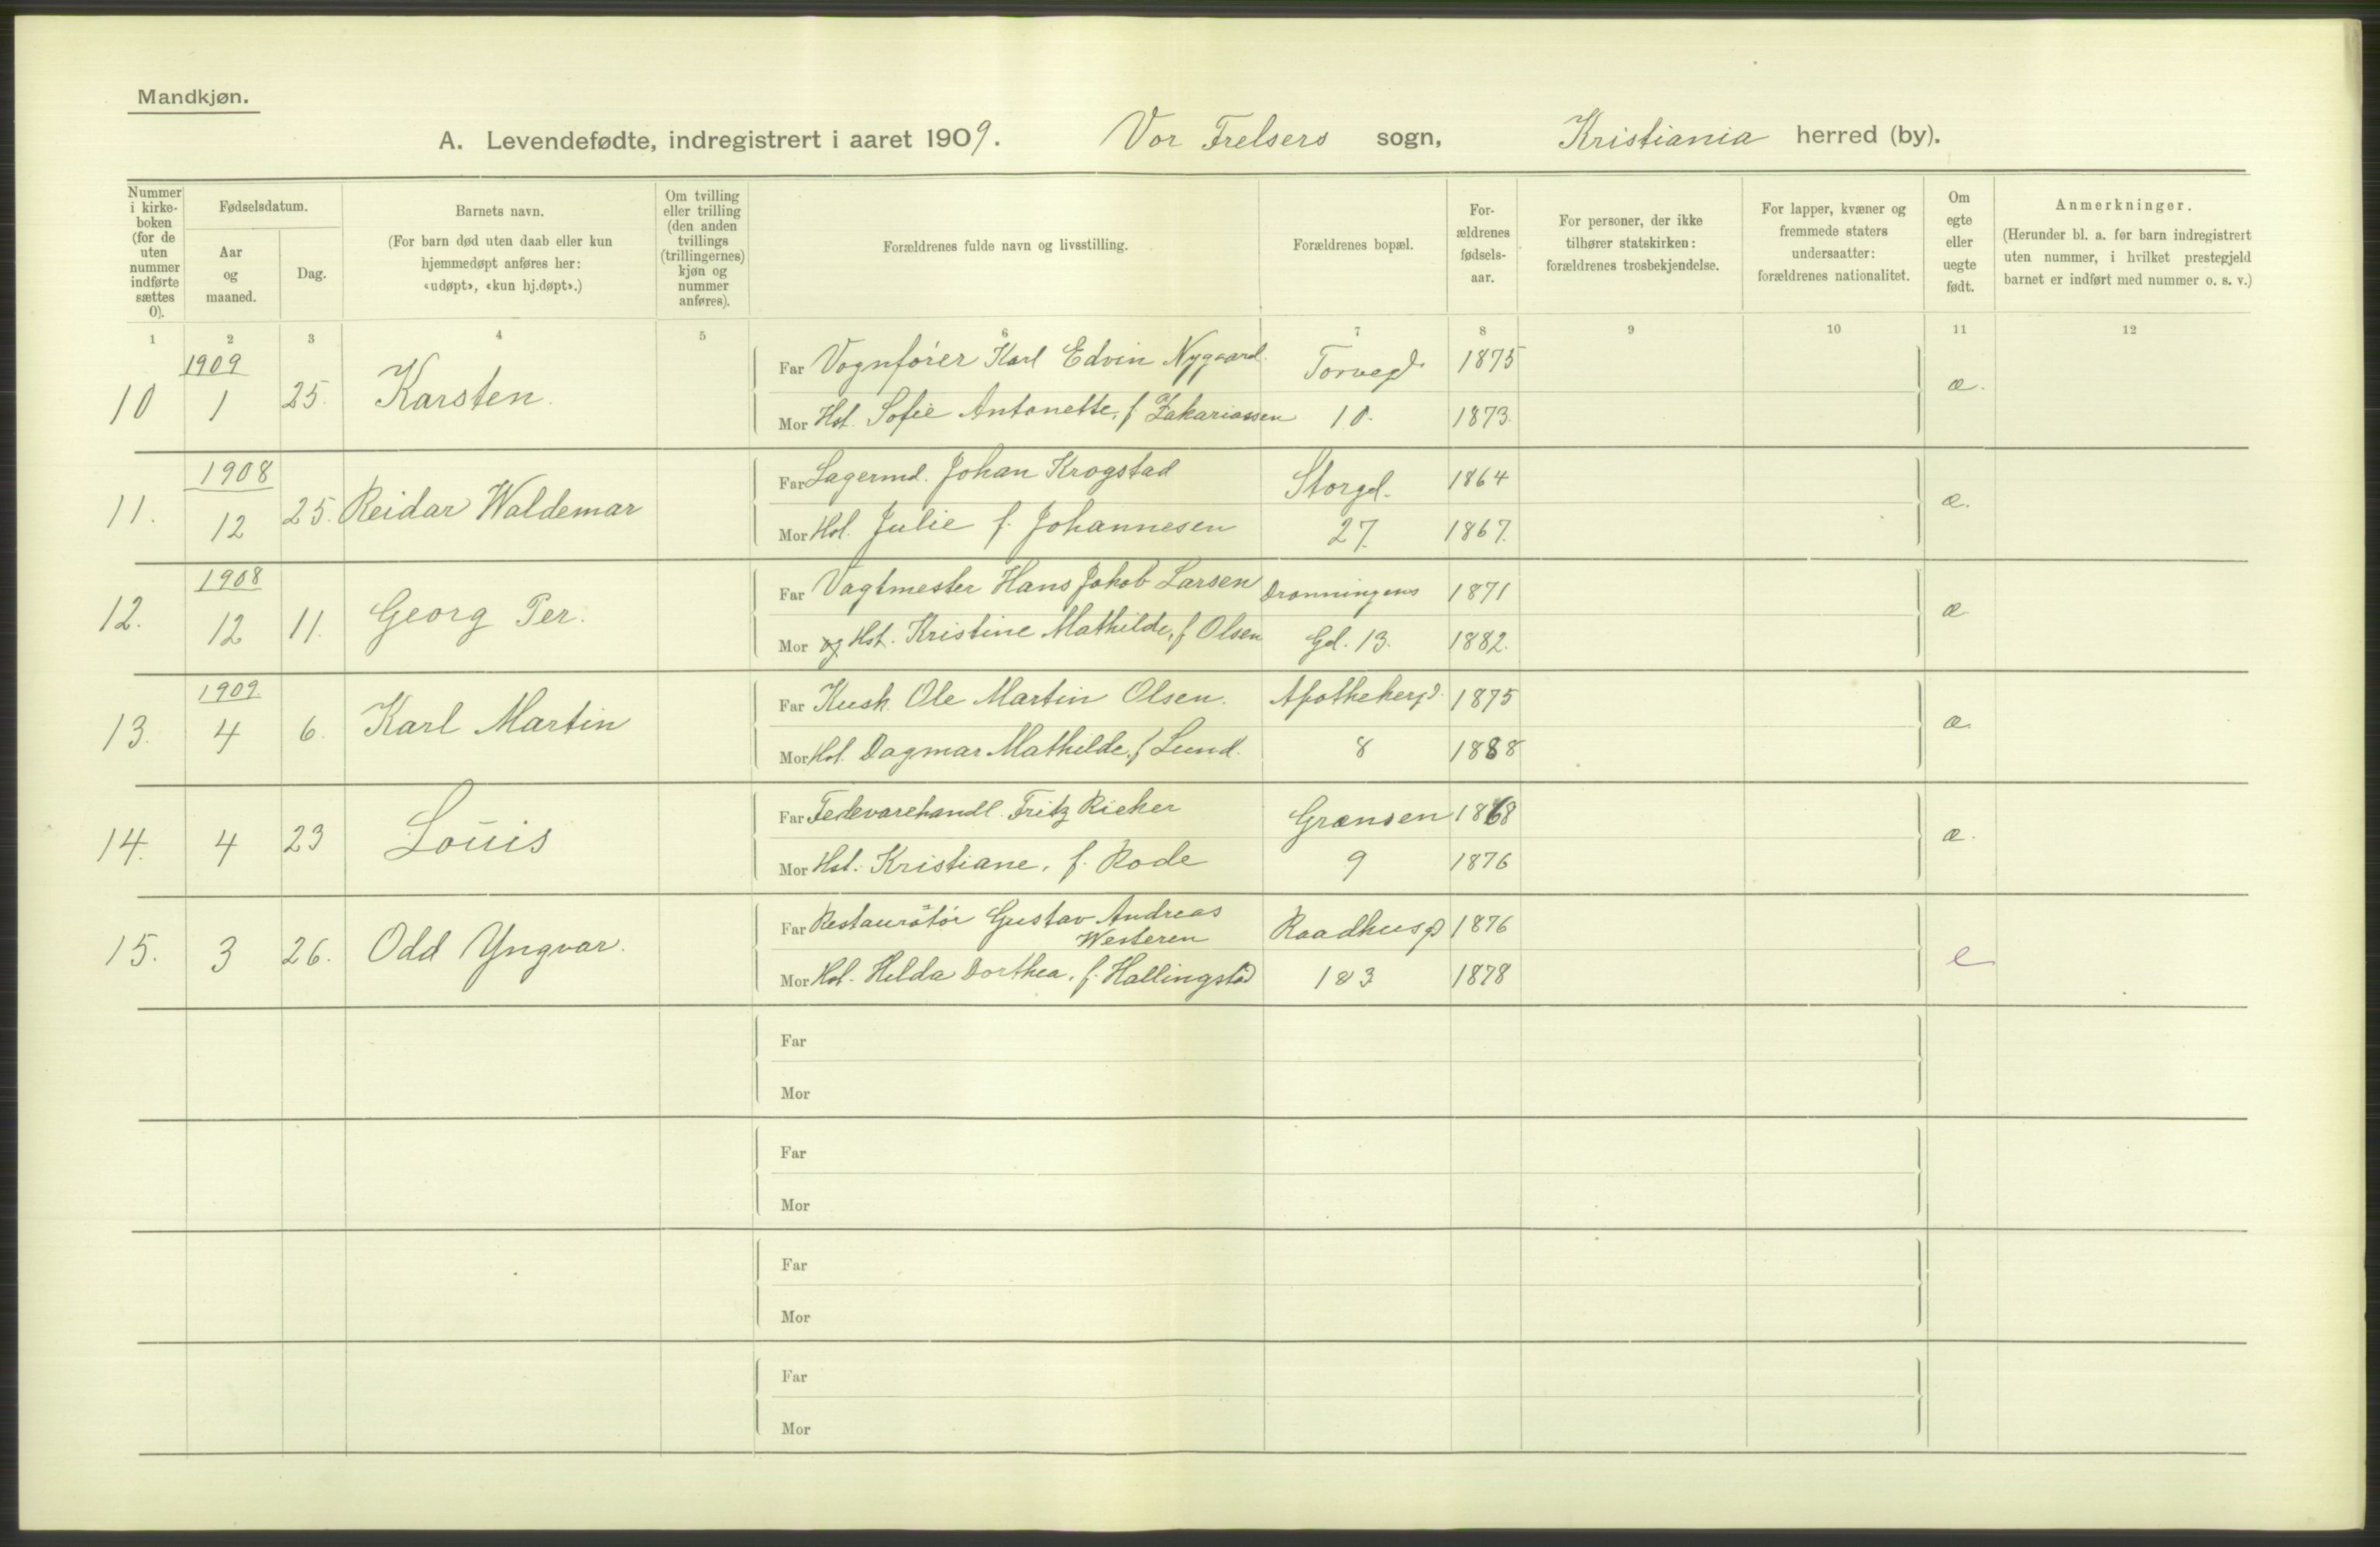 Mandkjøn.
A. Levendefødte, indregistrert i aaret 1909. Vor Frelsers sogn, Kristiania herred (by).
Nummer i kirke-boken (for de uten nummer indførte sættes 0).
Fødselsdatum.
Aar og maaned.
Dag.
Barnets navn.
(For barn død uten daab eller kun hjemmedøpt anføres her: «udøpt», «kun hj.døpt».)
Om tvilling eller trilling (den anden tvillings (trillingernes) kjøn og nummer anføres).
Forældrenes fulde navn og livsstilling.
Forældrenes bopæl.
For-ældrenes fødsels-aar.
For personer, der ikke tilhører statskirken: forældrenes trosbekjendelse.
For lapper, kvæner og fremmede staters undersaatter: forældrenes nationalitet.
Om egte eller uegte født.
Anmerkninger.
(Herunder bl. a. for barn indregistrert uten nummer, i hvilket prestegjeld barnet er indført med nummer o. s. v.)
1 2 3 4 5 6 7 8 9 10 11 12
1909
10 1 25. Karsten. Far Vognfører Karl Edvin Nygaard. Torvegd. 1875 æ.
Mor Hst. Sofie Antonette, f. Zakariassen 10. 1873.
1908
11. 12 25. Reidar Waldemar Far Lagermd. Johan Krogstad Storgd. 1864 æ.
Mor Hst. Julie f. Johannesen 27. 1867.
1908
12. 12 11. Georg Per. Far Vagtmester Hans Jakob Larsen Dronningens 1871 æ
Mor og Hst. Kristine Mathilde, f. Olsen Gd. 13. 1882.
1909
13. 4 6. Karl Martin Far Kusk Ole Martin Olsen. Apothekergd. 1875 æ.
Mor Hst. Dagmar Mathilde, f. Lund. 8 1888
14. 4 23 Louis Far Fedevarehandl. Fritz Rieker Grænsen 1868 æ.
Mor Hst. Kristiane, f. Rode 9 1876
15. 3 26. Odd Yngvar. Far Restauratør Gustav Andreas Westeren Raadhusgd 1876 e
Mor Hst. Hilda Dorthea, f. Hallingstad 1 &amp; 3 1878
Far
Mor
Far
Mor
Far
Mor
Far
Mor